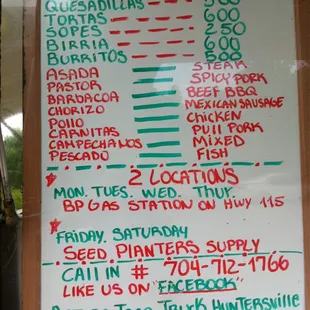 QUESADILLAS
TORTAS 600
SOPES 250
BIRRIA 600
BURRITOS 500
ASADA STEAK
PASTOR SPICY PORK
BARBACOA BEEF BBQ
CHORIZO MEXICAN SAUSAGE
POLLO CHICKEN
CARNITAS PULL PORK
CAMPECHANOS MIXED
PESCADO FISH
2 LOCATIONS
MON. TUES. WED. THUR.
BP GAS STATION ON HWY 115
FRIDAY. SATURDAY
SEED PLANTERS SUPPLY
CALL IN # 704-712-1766
LIKE US ON "FACEBOOK"
TACO TRUCK HUNTERSVILLE